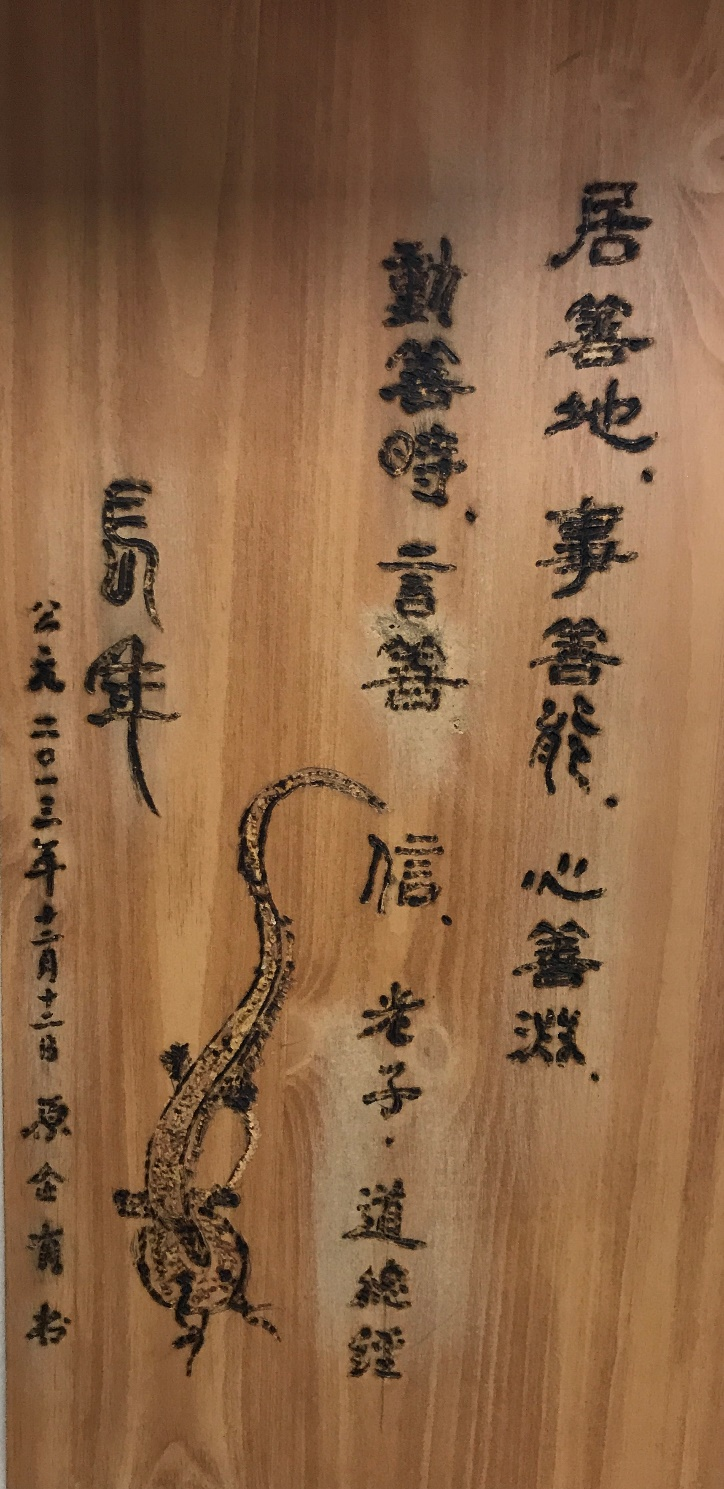 居善地.事善能.心善淵.
動善時.言善信.老子·道德經
長年
公元二〇一三年十二月十二日 原金育书